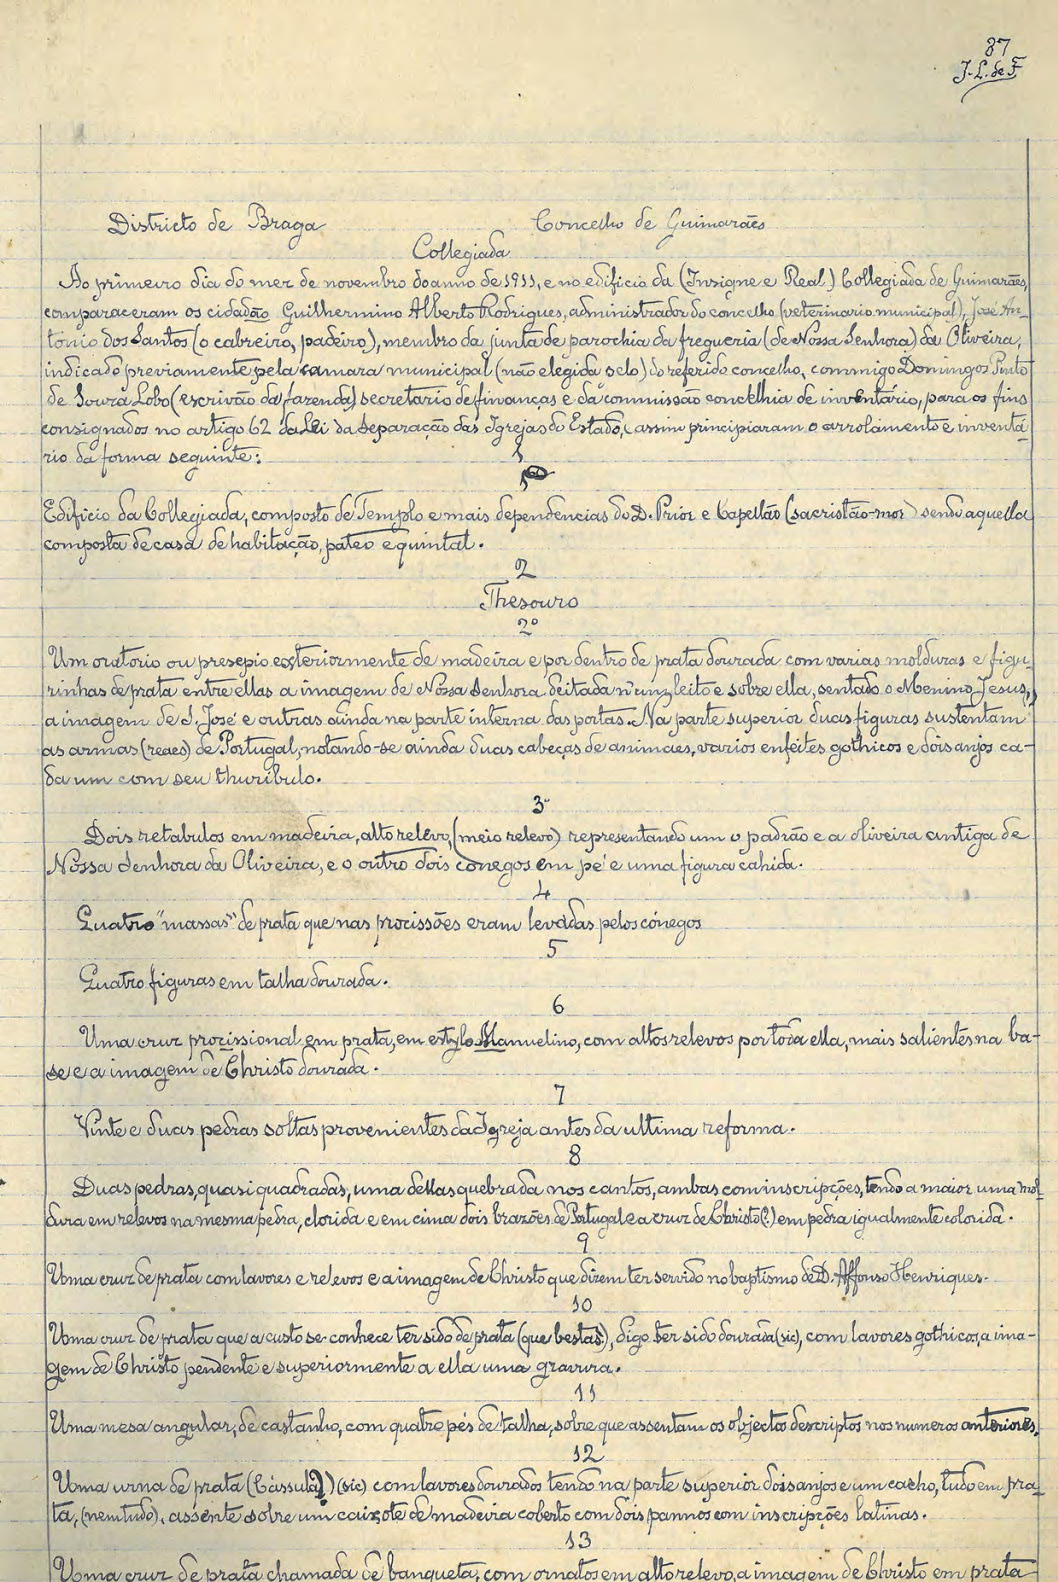 87
J. L. de F.
Districto de Braga Concelho de Guimarães
Collegiada
Ao primeiro dia do mez de novembro do anno de 1911, e no edificio da (Insigne e Real) Collegiada de Guimarães,
comparaceram os cidadão Guilhermino Alberto Rodrigues, administrador do concelho (veterinario municipal), José An-
tonio dos Santos (o cabreiro, padeiro), membro da junta de parochia da freguezia (de Nossa Senhora) da Oliveira,
indicado previamente pela camara municipal (não elegida pelo) do referido concelho, commigo Domingos Pinto
de Souza Lobo (escrivão da fazenda) secretario de finanças e da commissão concelhia de inventário, para os fins
consignados no artigo 62 da Lei da Separação das Igrejas do Estado, e assim principiaram o arrolamento e inventá-
rio da forma seguinte:
1
1º
Edificio da Collegiada, composto de Templo e mais dependencias do D. Prior e Capellão (sacristão-mor) sendo aquella
composta de casa de habitação, pateo e quintal.
2
Thesouro
2º
Um oratorio ou presepio exteriormente de madeira e por dentro de prata dourada com varias molduras e figu-
rinhas de prata entre ellas a imagem de Nossa Senhora deitada n'um leito e sobre ella, sentado o Menino Jesus,
a imagem de S. José e outras ainda na parte interna das portas. Na parte superior duas figuras sustentam
as armas (reaes) de Portugal, notando-se ainda duas cabeças de animaes, varios enfeites gothicos e dois anjos ca-
da um com seu thuribulo.
3º
Dois retabulos em madeira, alto relevo, (meio relevo) representando um o padrão e a oliveira antiga de
Nossa Senhora da Oliveira, e o outro dois conegos em pé e uma figura cahida.
4
Quatro "massas" de prata que nas procissões eram levadas pelos cónegos
5
Quatro figuras em talha dourada.
6
Uma cruz processional em prata, em estylo Manuelino, com altos relevos por toda ella, mais salientes na ba-
se e a imagem de Christo dourada.
7
Vinte e duas pedras soltas provenientes da Igreja antes da ultima reforma.
8
Duas pedras, quasi quadradas, uma dellas quebrada nos cantos, ambas com inscripções, tendo a maior uma mol-
dura em relevos na mesma pedra, clorida e em cima dois brazões de Portugal e a cruz de Christo (?) em pedra igualmente colorida.
9
Uma cruz de prata com lavores e relevos e a imagem de Christo que dizem ter servido no baptismo de D. Affonso Henriques.
10
Uma cruz de prata que a custo se conhece ter sido de prata (que bestas!), digo ter sido dourada (sic), com lavores gothicos, a ima-
gem de Christo pendente e superiormente a ella uma gravura.
11
Uma mesa angular, de castanho, com quatro pés de talha, sobre que assentam os objectos descriptos nos numeros anteriores.
12
Uma urna de prata (Cássula?) (sic) com lavores dourados tendo na parte superior dois anjos e um cacho, tudo em pra-
ta, (nem tudo), assente sobre um caixote de madeira coberto com dois pannos com inscripções latinas.
13
Uma cruz de prata chamada de banqueta, com ornatos em alto relevo, a imagem de Christo em prata